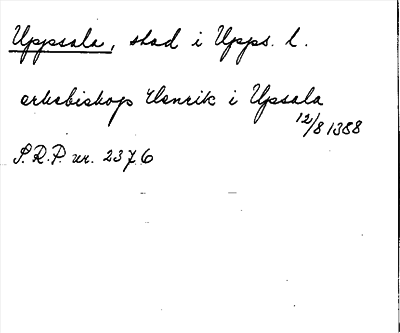 Uppsala, stad i Upps. l.
erkebiskop Henrik i Upsala
12/8 1388
S.R.P. nr. 2376